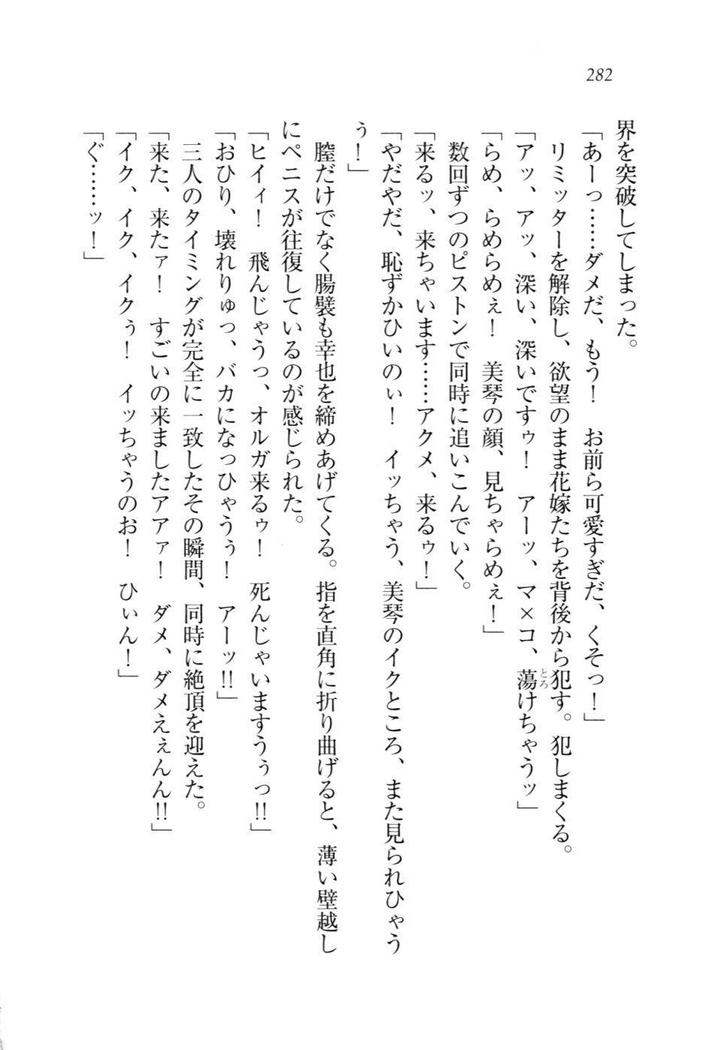 282
界を突破してしまった。
「あーっ……ダメだ、もう！　お前ら可愛すぎだ、くそっ！」
リミッターを解除し、欲望のまま花嫁たちを背後から犯す。犯しまくる。
「アッ、アッ、深い、深いですゥ！　アーッ、マ×コ、蕩けちゃうッ」
とろ
「らめ、らめらめぇ！　美琴の顔、見ちゃらめぇ！」
数回ずつのピストンで同時に追いこんでいく。
「来るッ、来ちゃいます……アクメ、来るゥ！」
「やだやだ、恥ずかひいのぃ！　イッちゃう、美琴のイクところ、また見られひゃう
ぅ！」
膣だけでなく腸襞も幸也を締めあげてくる。指を直角に折り曲げると、薄い壁越し
にペニスが往復しているのが感じられた。
「ヒイィ！　飛んじゃうっ、オルガ来るゥ！　死んじゃいますうぅっ!!」
「おひり、壊れりゅっ、バカになっひゃうぅ！　アーッ!!」
三人のタイミングが完全に一致したその瞬間、同時に絶頂を迎えた。
「来た、来たァ！　すごいの来ましたアアァ！　ダメ、ダメえぇんん!!」
「イク、イク、イクぅ！　イッちゃうのお！　ひぃん！」
「ぐ……ッ！」